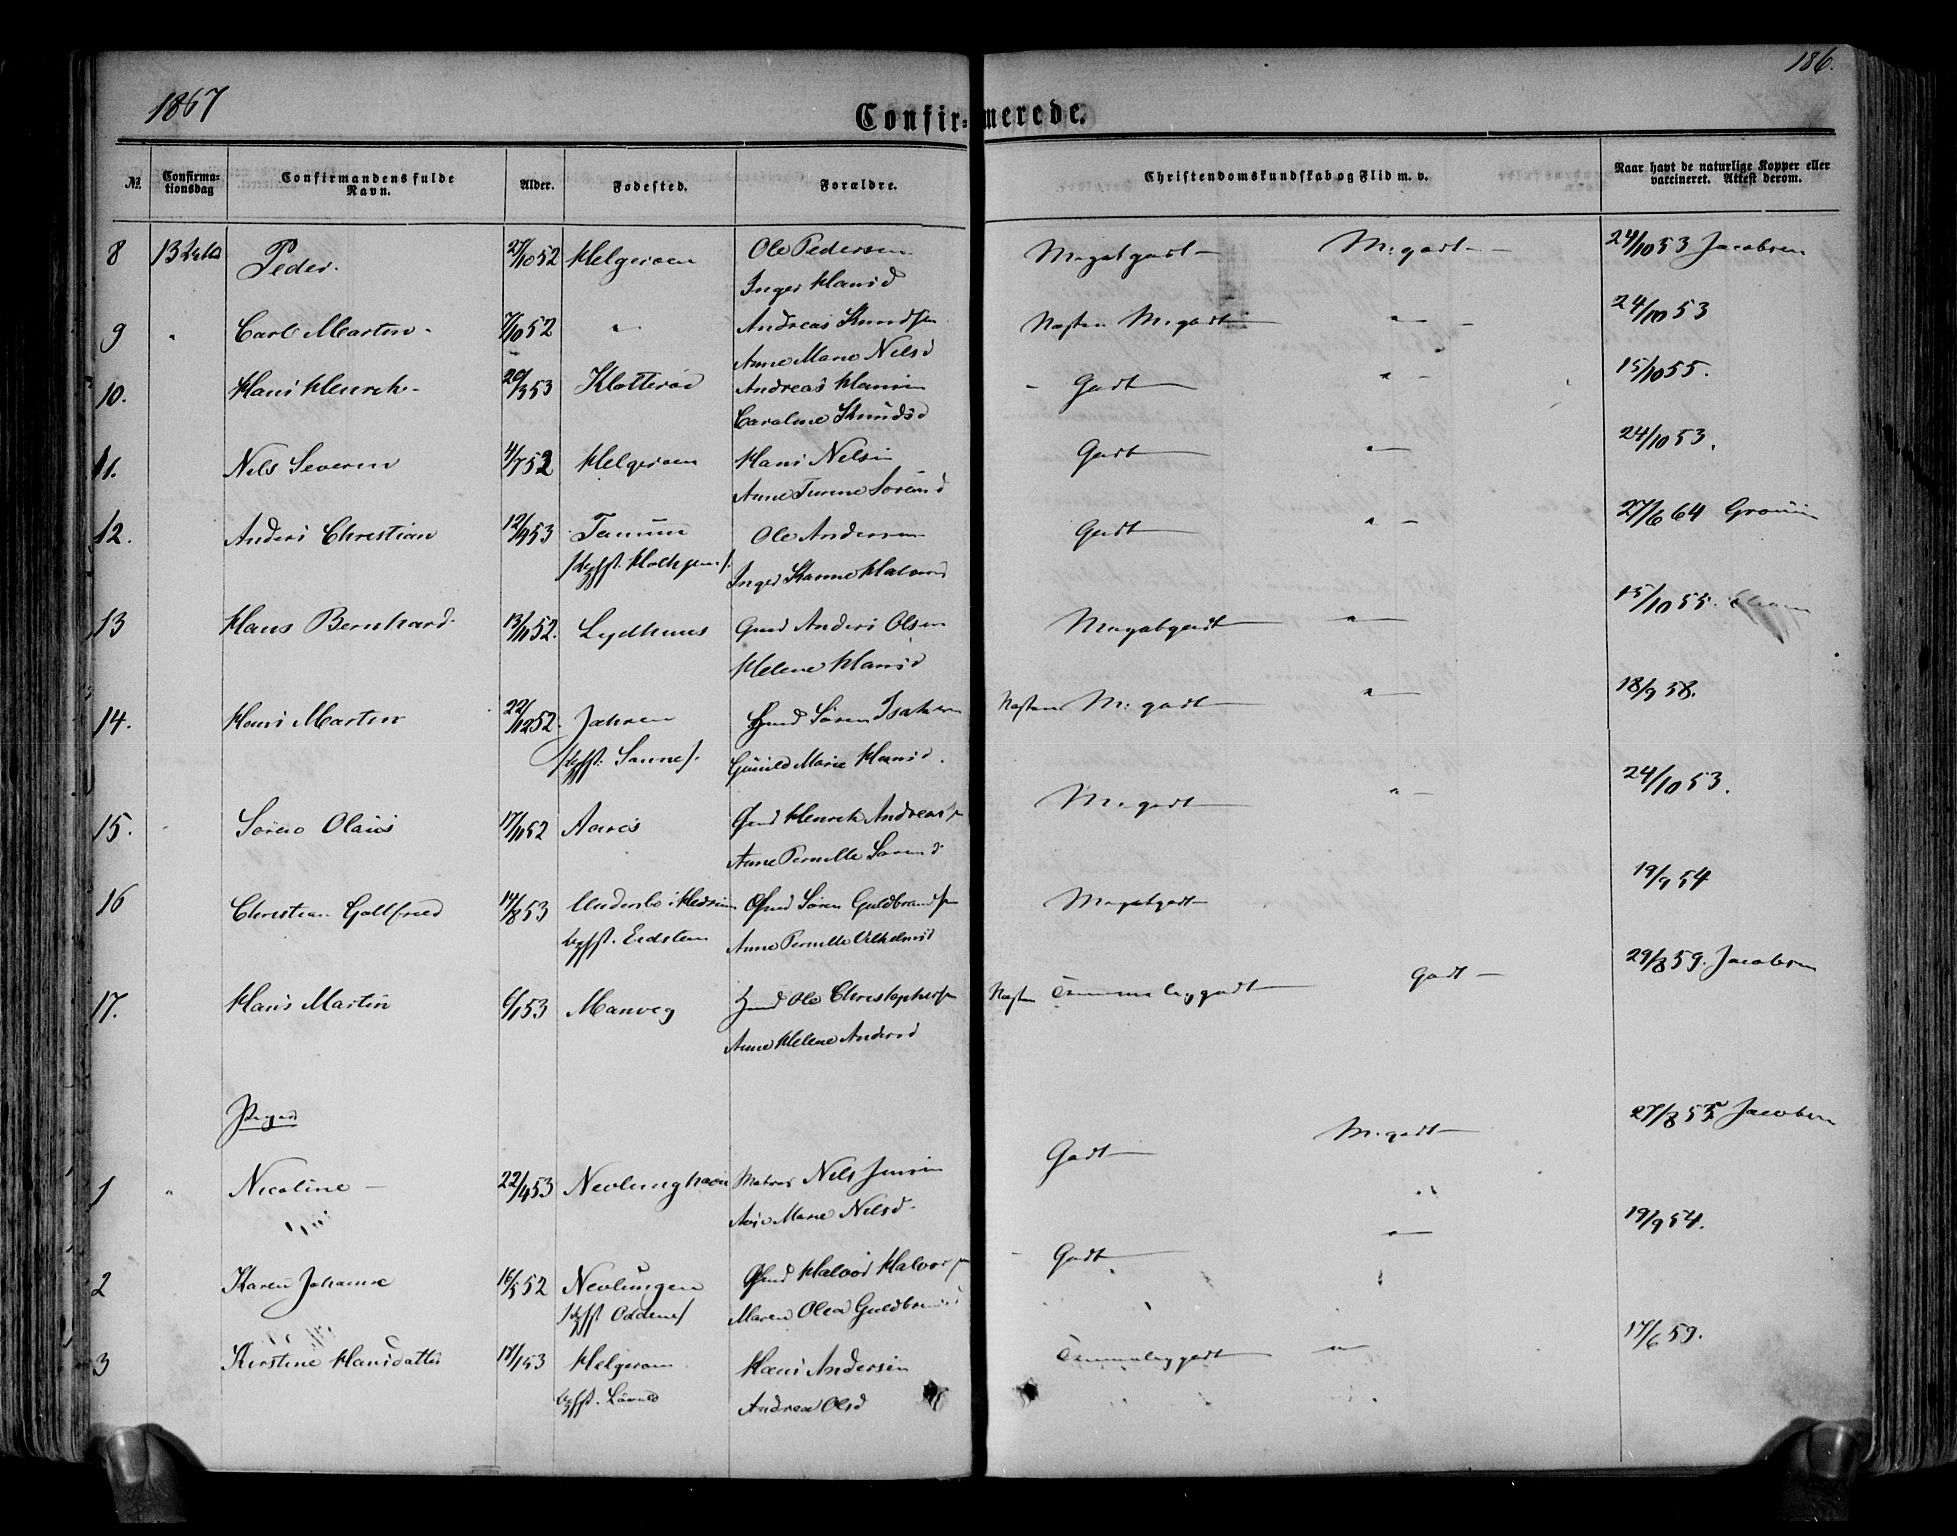 1867
186.
Confirmerede.
No. Confirmationsdag Confirmandens fulde Navn. Alder. Fødested. Forældre. Christendomskundskab og Flid m. v. Naar havt de naturlige Kopper eller vaccineret. Attest derom.
8 13 Peder. 27/10 52 Helgeroen Ole Pedersen Meget godt M. godt 24/10 53 Jacobsen
Inger Hansd
9 " Carl Martin 7/10 52 " Andreas Knudsen Næsten M. godt " 24/10 53
Anne Marie Nilsd
10. Hans Henrik 20/3 53 Andreas Hansen Godt " 15/10 55.
Caroline Knudsd
11. Nils Severin 4/7 52 Helgeroen Hans Nilsen Godt " 24/10 53.
Anne Sørensd
12. Anders Christian 12/9 53 Tanum Ole Andersen Godt " 27/6 64
Inger Halvorsd
13 Hans Bernhard 13/11 52. Lydhuus Gmd Anders Olsen Meget godt " 15/10 55.
Helene Hansd
14. Hans Martin 22/12 52. Jahren Søren Isaksen Næsten M. godt " 18/9 58.
Gunild Marie Hansd.
15. Søren Olaus 17/11 52 Aarøs Gmd Henrik Andreassen M. godt " 24/10 53.
Anne Pernille Sørensd
16 Christian Gottfried 14/8 53 Gmd Søren Guldbrandsen Meget godt 19/9 54
Eidsten Anne Pernille Vilhelmsd
17. Hans Martin 6/1 53 Manveg Ole Christophersen Næsten Temmelig godt Godt 29/8 59. Jacobsen
Anne Helene Andersd
Piger
1 " Nicoline 22/4 53 Nevlunghavn Matros Nils Jensen Godt M. godt 27/8 55 Jacobsen
Marie Nilsd
2 Karen Johanne 16/5 52 Nevlungen Gmd Halvor Halvorsen Godt " 19/9 54.
Oddene Maren Olea Guldbrandsd
3 Kirstine Hansdatter 17/1 53 Helgeroen Hans Andersen Temmelig godt " 17/6 59.
Andrea Olsd